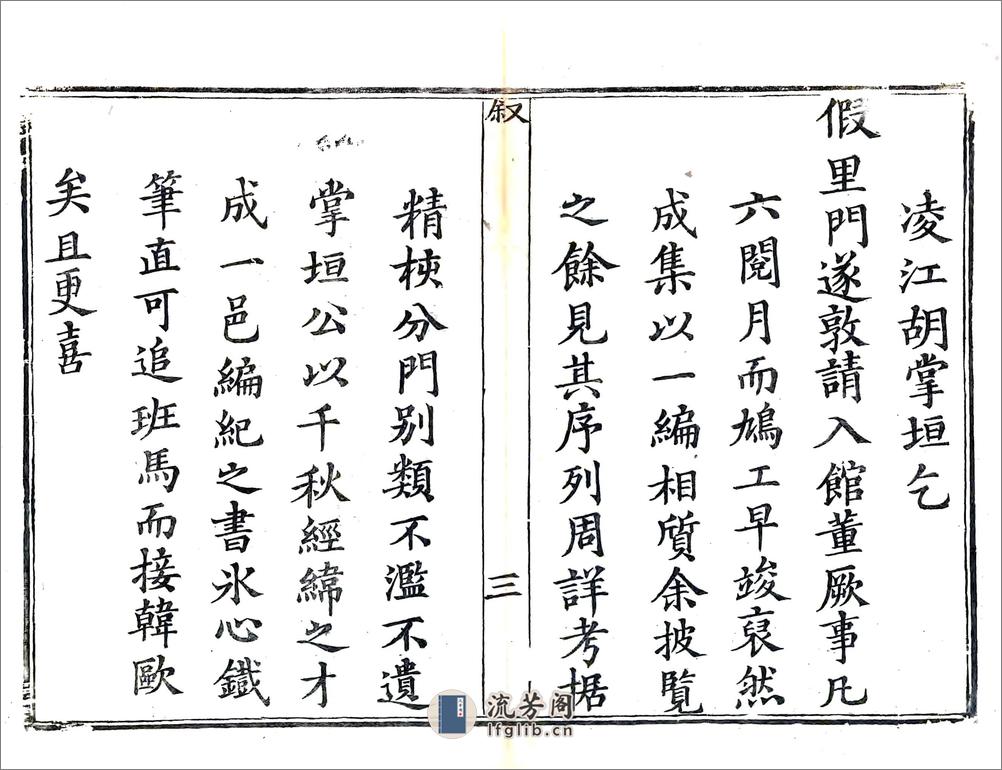 凌江胡掌垣乞
假里門遂敦請入館董厥事凡
六閱月而鳩工早竣裒然
成集以一編相質余披覽
之餘見其序列周詳考据
叙
三
精核分門别類不濫不遺
掌垣公以千秋經緯之才
成一邑編紀之書氷心鐵
筆直可追班馬而接韓歐
矣且更喜
流芳阁
lfglib.cn